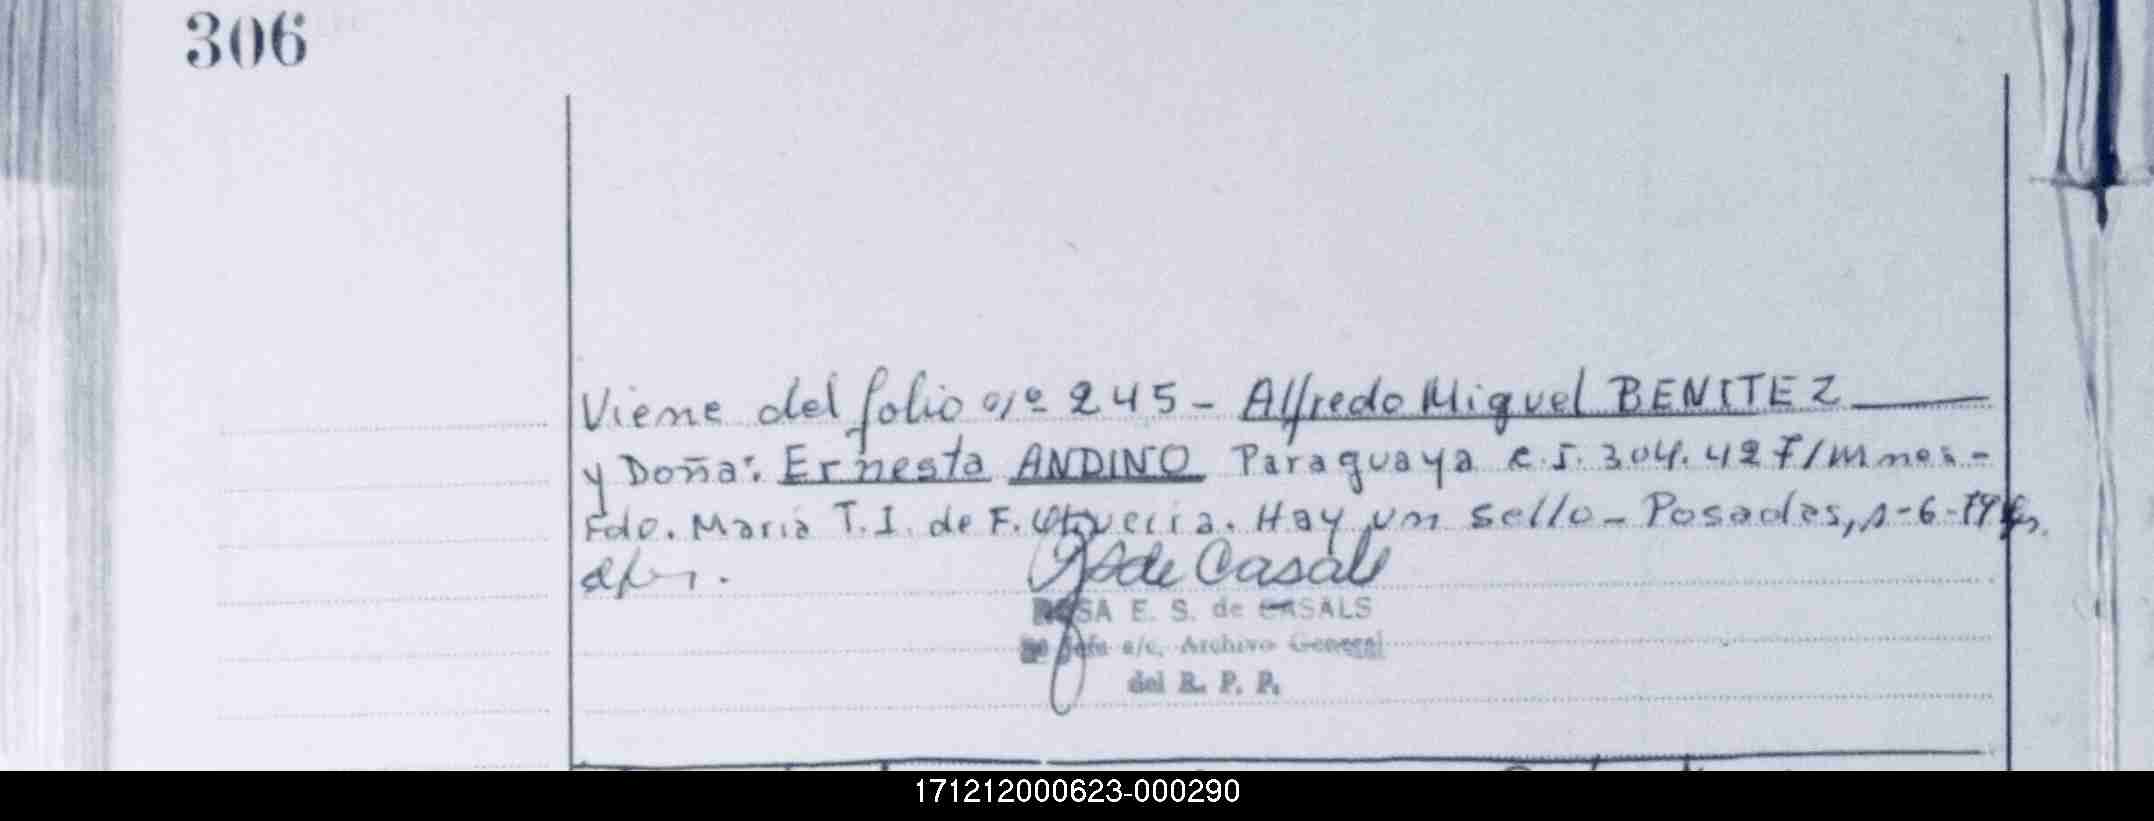 306
Viene del folio nº 245 - Alfredo Miguel BENITEZ
y Doña: Ernesta ANDINO Paraguaya c.I. 304.427/Mnes-
Fdo. Maria T. I. de F. Hay un sello - Posadas,
de Casals
ROSA E. S. de CASALS
Jefa a/c. Archivo General
del R. P. P.
171212000623-000290